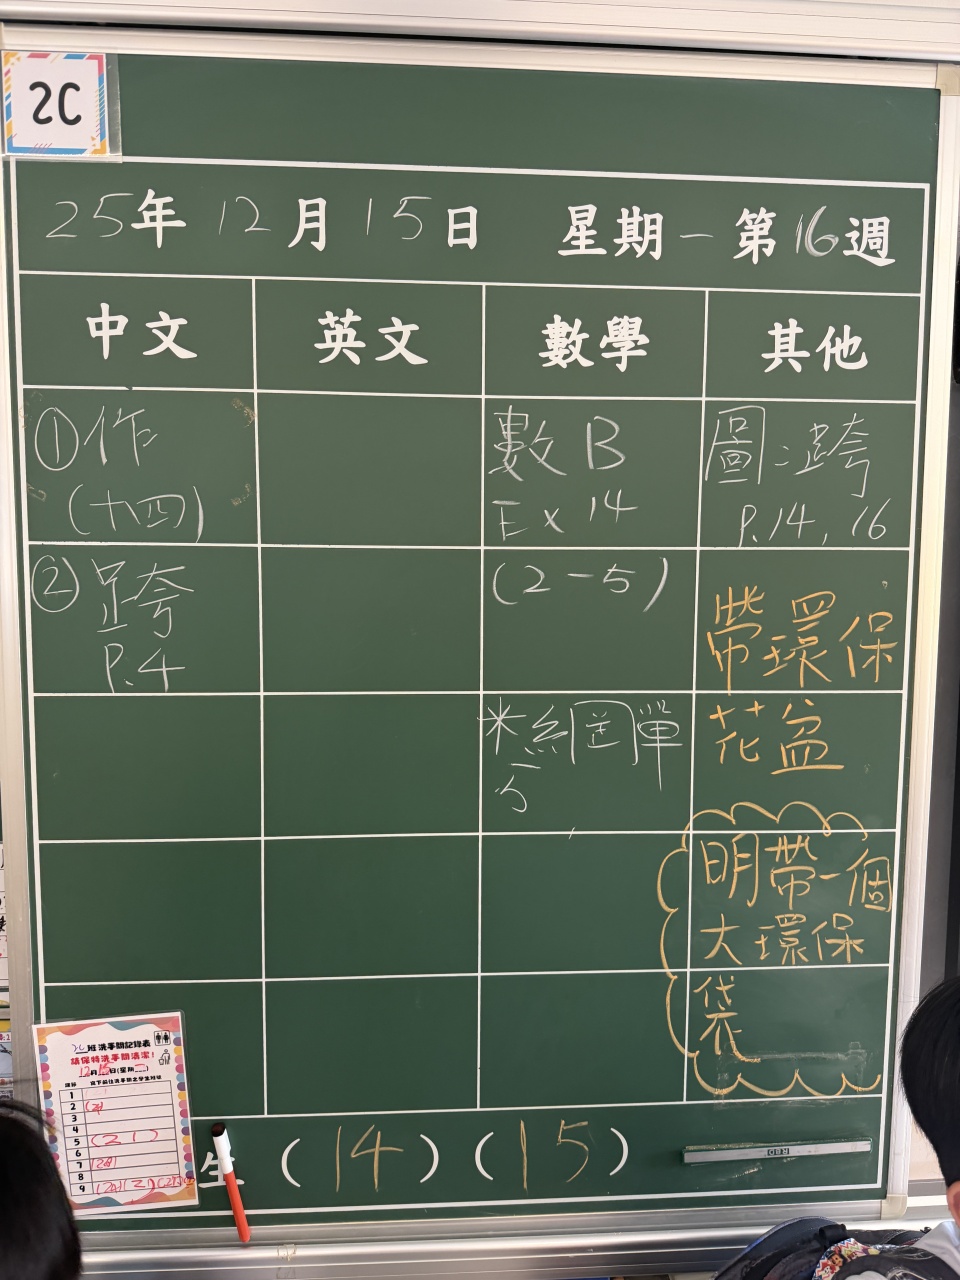 2C
25年12月15日 星期一 第16週
中文 英文 數學 其他
①作
(十四)
②跨
P.4
數B
Ex 14
(2-5)
圖：跨
P.14, 16
帶環保
花盆
明帶一個
大環保
袋
2C班洗手間記錄表
請保持洗手間清潔！
12月15日(星期一)
1
2
3
4
5 (21)
6
7
8
9
生 (14) (15)